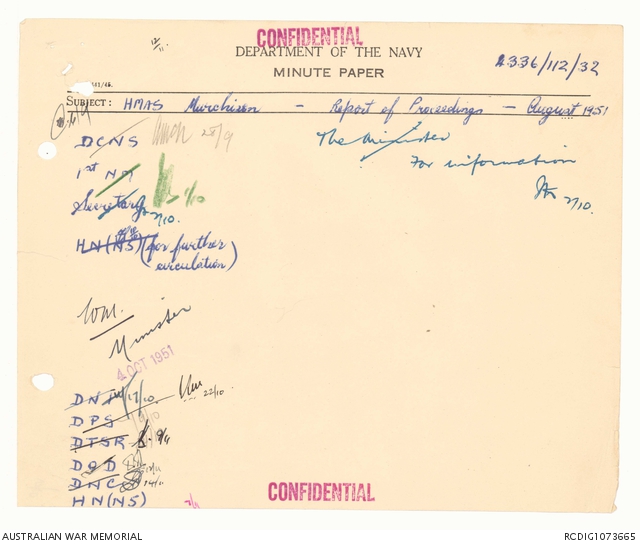 12/11.
CONFIDENTIAL
DEPARTMENT OF THE NAVY
MINUTE PAPER
336/112/32
SUBJECT: HMAS Murchison — Report of Proceedings — August 1951
DCNS 28/9
The Minister
For information
2/10.
1st NM 1/10
Secretary 2/10.
HN(NS) (for further circulation)
Minister
4 OCT 1951
DNI 17/10 22/10
DPS
DTSR 9/11
DOD
DNC 14/11
HN(NS)
CONFIDENTIAL
AUSTRALIAN WAR MEMORIAL
RCDIG1073665